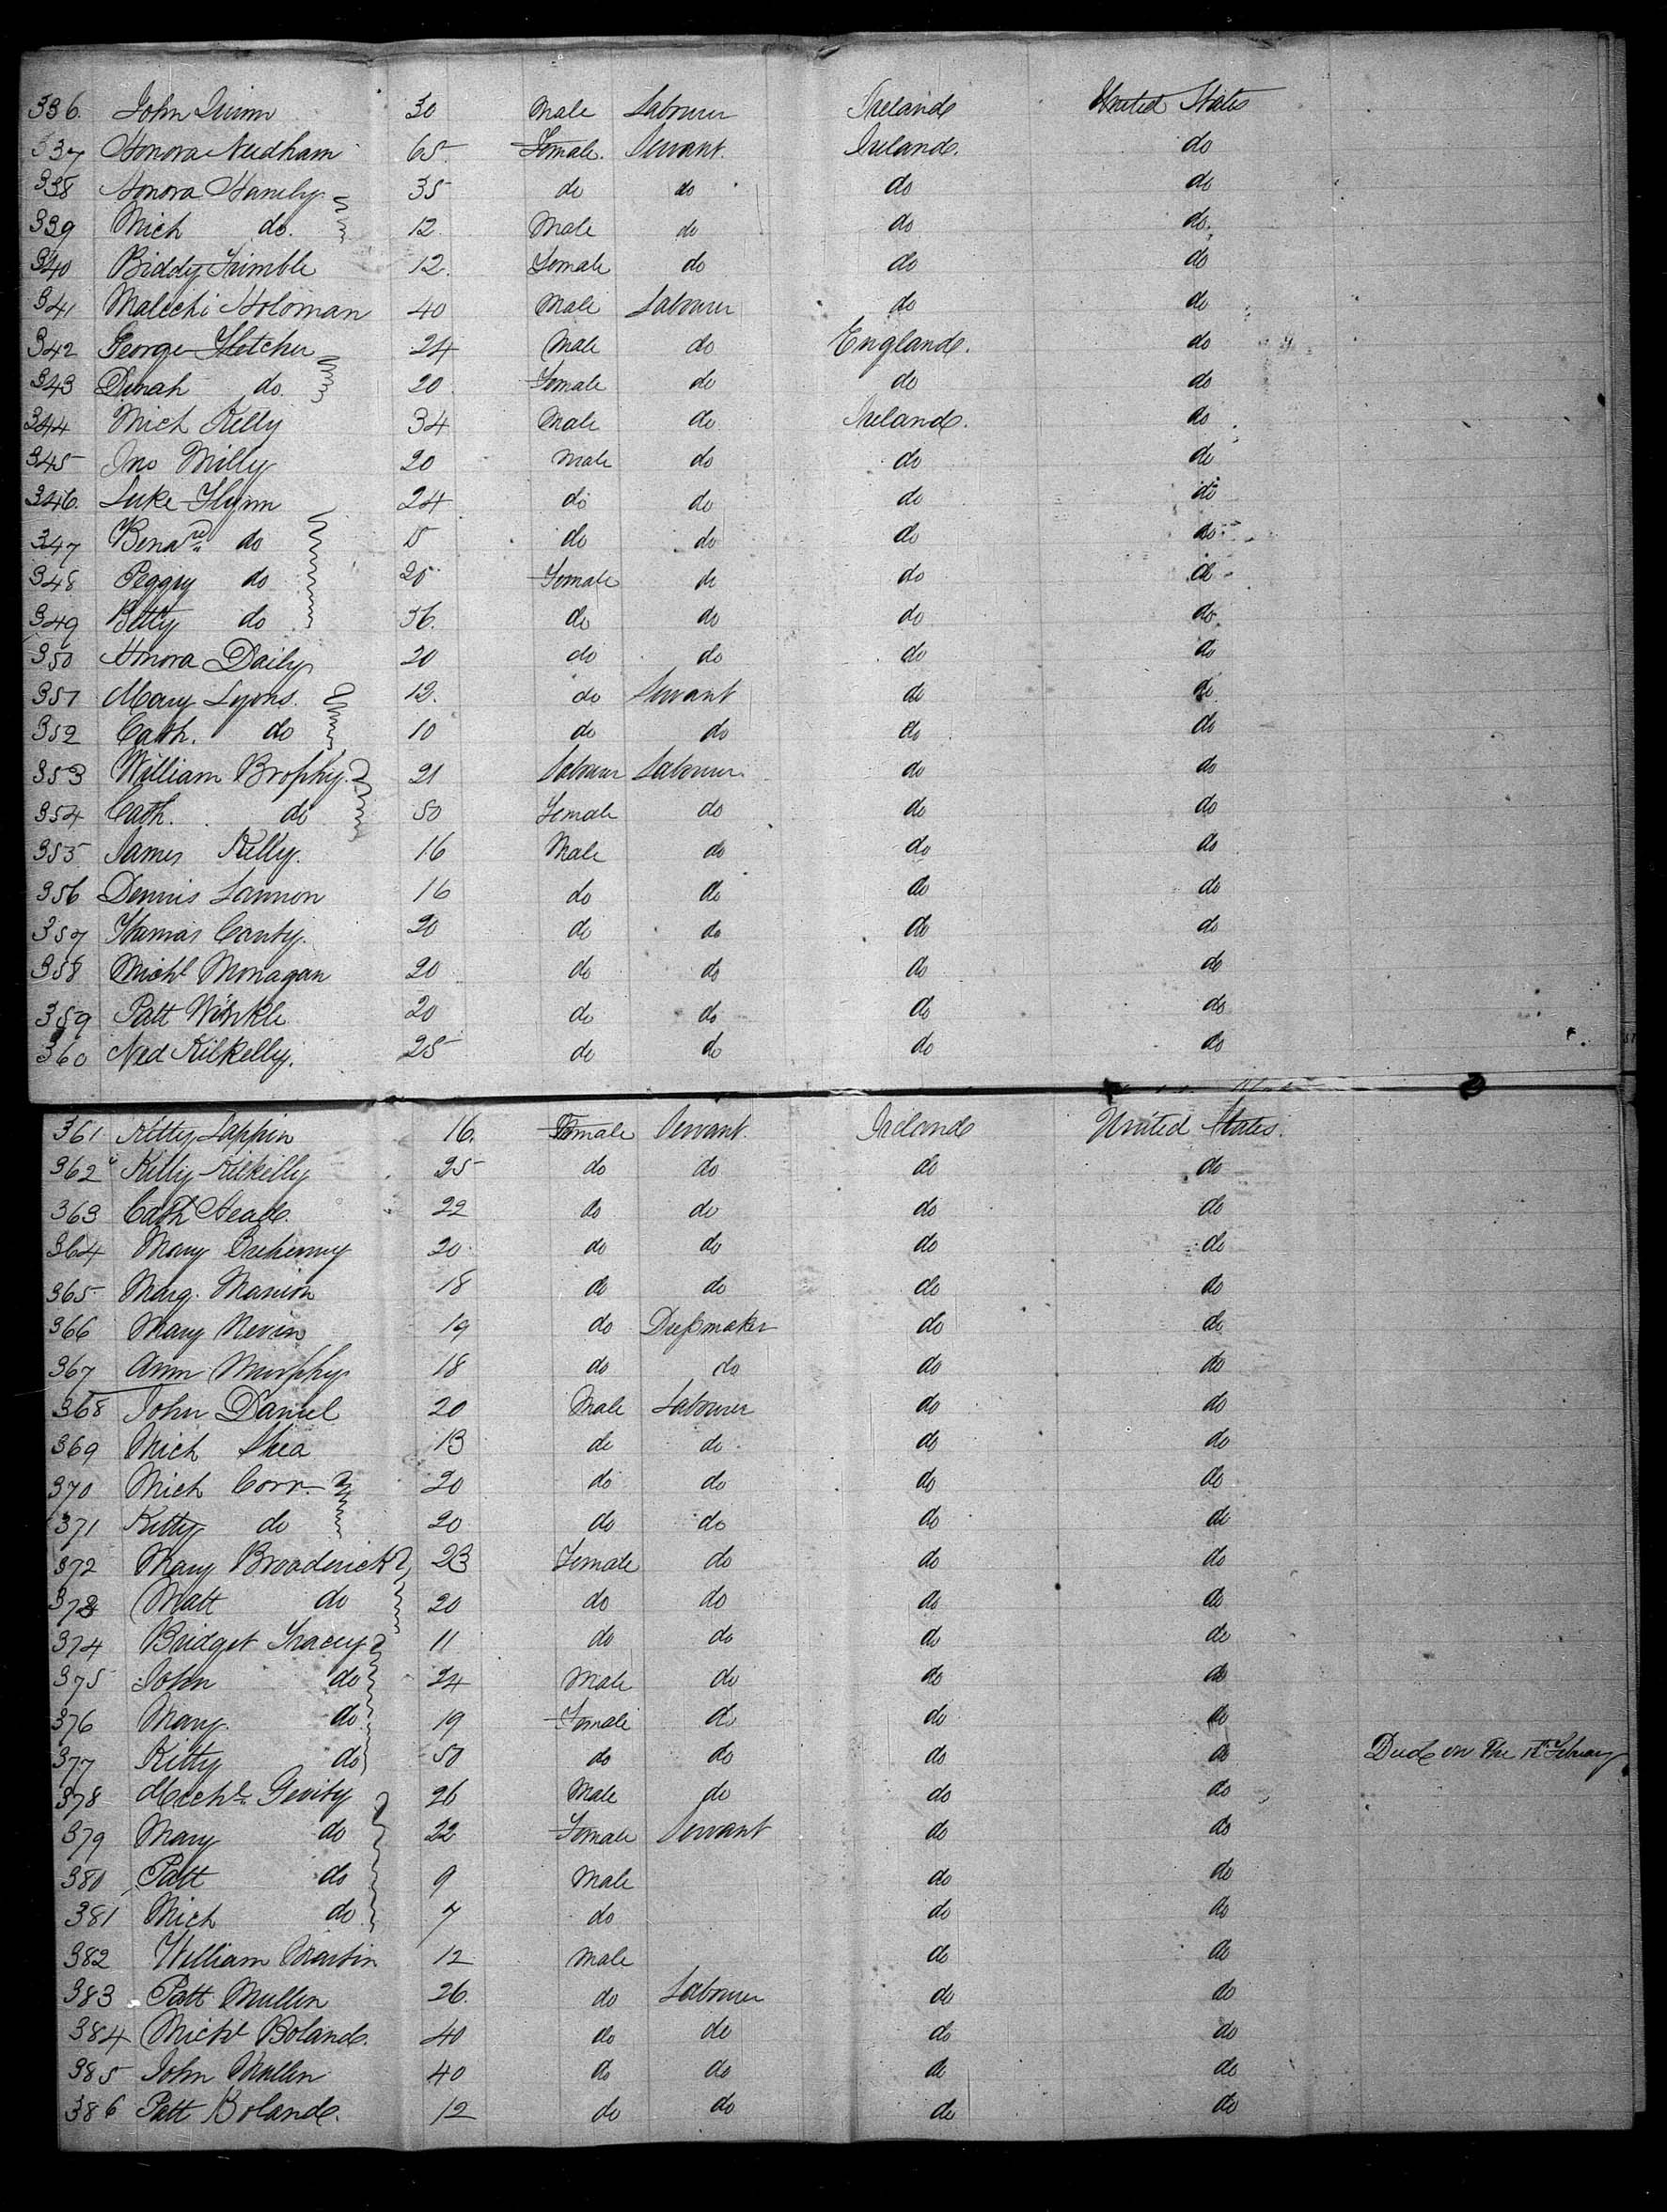 336. John Quinn 30 Male Labourer Ireland United States
337 Honora Needham 65. Female. Servant. Ireland. do
338 Honora 35 do do do do
339 Mich do. 12. Male do do do.
340 Biddy Trimble 12. Female do do do
341 Malechi Holoman 40 Male Labourer do do
342 George Fletcher 24 Male do England. do
343 Dinah do. 20 Female do do do
344 Mich Kelly 34 Male do Ireland. do
345 Jno Milly 20 Male do do do
346. Luke Flynn 24 do do do do
347 Benard do do do do do
348 Peggy do Female do do do
349 Betty do 36. do do do do
350 Honora Daily 20 do do do do
351 Mary Lyons. 12. do Servant do do
352 Cath. do 10 do do do do
353 William Brophy. 21 Labourer Labourer. do do
354 Cath. do 50 Female do do do
355 James Kelly. 16 Male do do do
356 Dennis Lannon 16 do do do do
357 Thomas Canty. 20 do do do do
358 Michl Monagan 20 do do do do
359 Patt Winkle 20 do do do do
360 Ned Kilkelly. 25 do do do do
361 Kitty Lappin 16. Female Servant. Ireland United States.
362 Kitty Kilkelly 25 do do do do
363 Cath Heade. 22 do do do do
364 Mary Breheny 20 do do do do
365 Marg. Manion 18 do do do do
366 Mary Nevin 19 do Dressmaker do do
367 Ann Murphy 18 do do do do
368 John Daniel 20 Male Labourer do do
369 Mich Shea 13 do do do do
370 Mich Corr 20 do do do do
371 Kitty do 20 do do do do
372 Mary Broaderick 23 Female do do do
373 Matt do 20 do do do do
374 Bridget Tracey 11 do do do do
375 John do 24 Male do do do
376 Mary. do 19 Female do do do
377 Kitty do 50 do do do do Died on the February
378 Michl. Gevity 26 Male do do do
379 Mary do 22 Female Servant do do
380 Patt do 9 Male do do
381 Mich do 7 do do do
382 William Martin 12 Male do do
383 Patt Mullen 26. do Labourer do do
384 Michl Boland. 40 do do do do
385 John Mullen 40 do do do do
386 Patt Boland. 12 do do do do